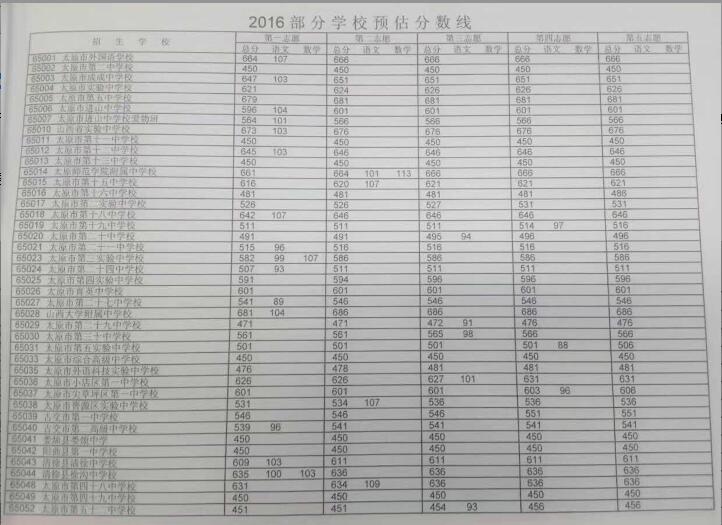 2016部分学校预估分数线
招 生 学 校 第一志愿 第二志愿 第三志愿 第四志愿 第五志愿
总分 语文 数学 总分 语文 数学 总分 语文 数学 总分 语文 数学 总分 语文 数学
65001 太原市外国语学校 664 107 666 666 666 666
65002 太原市第二中学校 450 450 450 450 450
65003 太原市成成中学校 647 103 651 651 651 651
65004 太原市实验中学校 621 624 626 626 626
65005 太原市第五中学校 679 681 681 681 681
65006 太原市进山中学校 596 104 601 601 601 601
65007 太原市进山中学校爱物班 564 101 566 566 566 566
65010 山西省实验中学校 673 103 676 676 676 676
65011 太原市第十一中学校 450 450 450 450 450
65012 太原市第十二中学校 645 103 646 646 646 646
65013 太原市第十三中学校 450 450 450 450 450
65014 太原师范学院附属中学校 661 664 101 113 666 666 666
65015 太原市第十五中学校 616 620 107 621 621 621
65016 太原市第十六中学校 481 481 481 481 486
65017 太原市第二实验中学校 526 526 527 531 531
65018 太原市第十八中学校 642 107 646 646 646 646
65019 太原市第十九中学校 511 511 511 514 97 516
65020 太原市第二十中学校 491 491 495 94 496 496
65021 太原市第二十一中学校 515 96 516 516 516 516
65023 太原市第三实验中学校 582 99 107 586 586 586 586
65024 太原市第二十四中学校 507 93 511 511 511 511
65025 太原市第四实验中学校 591 594 596 596 596
65026 太原市育英中学校 601 601 601 601 601
65027 太原市第二十七中学校 541 89 546 546 546 546
65028 山西大学附属中学校 681 104 686 686 686 686
65029 太原市第二十九中学校 471 471 472 91 476 476
65030 太原市第三十中学校 561 561 565 98 566 566
65031 太原市第五实验中学校 501 501 501 501 88 506
65033 太原市综合高级中学校 450 450 450 450 450
65035 太原市外语科技实验中学校 476 478 481 481 481
65036 太原市小店区第一中学校 626 626 627 101 631 631
65037 太原市尖草坪区第一中学校 601 601 601 603 96 606
65038 太原市晋源区实验中学校 531 534 107 536 536 536
65039 古交市第一中学校 546 546 546 551 551
65040 古交市第二高级中学校 539 96 541 541 541 541
65041 娄烦县娄烦中学 450 450 450 450 450
65042 阳曲县第一中学校 450 450 450 450 450
65043 清徐县清徐中学校 609 103 611 611 611 611
65044 清徐县徐沟中学校 635 100 103 636 636 636 636
65048 太原市第四十八中学校 631 634 109 636 636 636
65049 太原市第四十九中学校 450 450 450 450 450
65052 太原市第五十二中学校 451 451 454 93 456 456